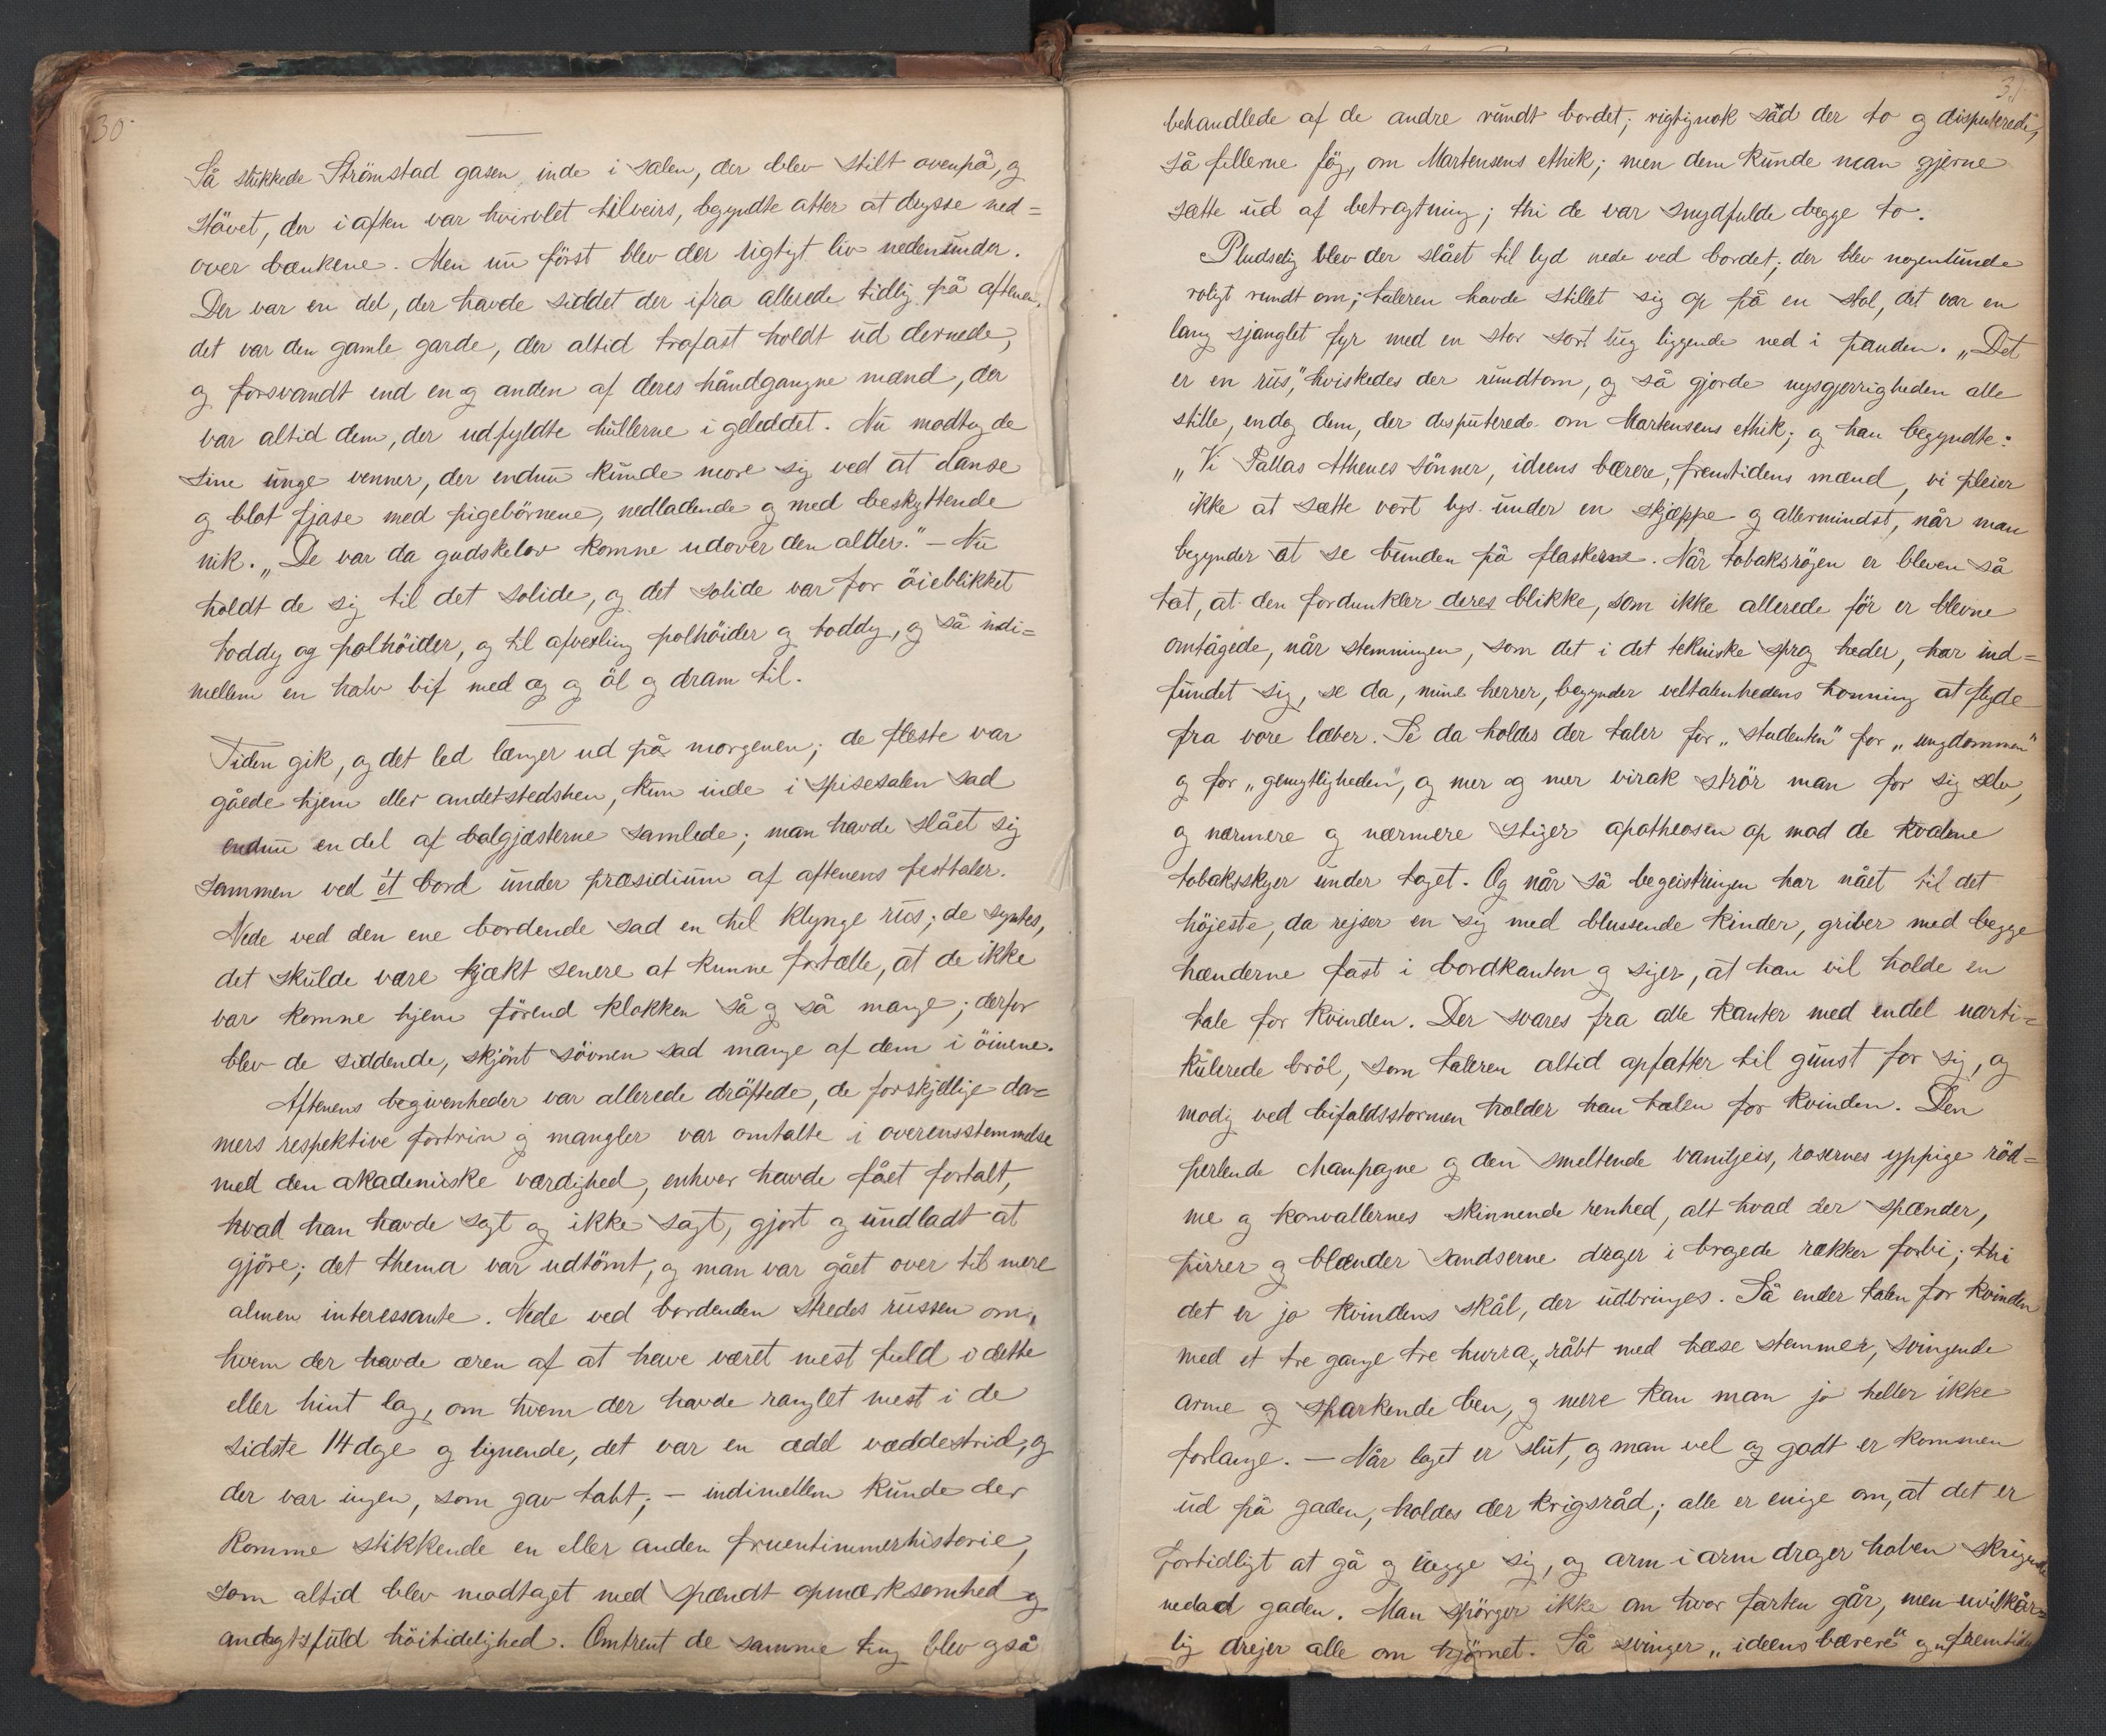 30
Så slukkede Strömstad gasen inde i salen, der blev stilt ovenpå, og
stövet, der i aften var hvirvlet tilveirs, begyndte atter at drysse ned=
over bænkene. Men nu först blev der rigtigt liv nedenunder.
Der var en del, der havde siddet der ifra allerede tidlig på aftenen,
det var den gamle garde, der altid trofast holdt ud dernede,
og forsvandt end en og anden af deres håndgangne mænd, der
var altid dem, der udfyldte hullerne i geleddet. Nu modtog de
sine unge venner, der endnu kunde more sig ved at danse
og blot fjase med pigebörnene, nedladende og med beskyttende
nik. „De var da gudskelov komne udover den alder." – Nu
holdt de sig til det solide, og det solide var for öieblikket
toddy og polhöider, og til afvexling polhöider og toddy, og så indi=
mellem en halv bif med æg og öl og dram til.
Tiden gik, og det led længer ud på morgenen; de fleste var
gåede hjem eller andetstedshen, kun inde i spisesalen sad
endnu en del af balgjæsterne samlede; man havde slået sig
sammen ved ét bord under præsidium af aftenens festtaler.
Nede ved den ene bordende sad en hel klynge rus; de syntes,
det skulde være kjækt senere at kunne fortælle, at de ikke
var komne hjem förend klokken så og så mange; derfor
blev de siddende, skjönt sövnen sad mange af dem i öinene.
Aftenens begivenheder var allerede dröftede, de forskjellige da=
mers respektive fortrin og mangler var omtalte i overensstemmelse
med den akademiske værdighed, enhver havde fået fortalt,
hvad han havde sagt og ikke sagt, gjort og undladt at
gjöre; det thema var udtömt, og man var gået over til mere
almen interessante. Nede ved bordenden stredes russen om,
hvem der havde æren af at have været mest fuld i dette
eller hint lag, om hvem der havde ranglet mest i de
sidste 14 dage og lignende, det var en ædel væddestrid, og
der var ingen, som gav tabt; – indimellem kunde der
komme stikkende en eller anden fruentimmerhistorie,
som altid blev modtaget med spændt opmærksomhed og
andagtsfuld höitidelighed. Omtrent de samme ting blev også
31
behandlede af de andre rundt bordet; rigtignok sad der to og disputerede,
så fillerne fög, om Martensens ethik; men dem kunde man gjerne
sætte ud af betragtning; thi de var snydfulde begge to.
Pludselig blev der slået til lyd nede ved bordet; der blev nogenlunde
roligt rundt om; taleren havde stillet sig op på en stol, det var en
lang sjanglet fyr med en stor sort lug liggende ned i panden. „Det
er en rus," hviskedes der rundtom, og så gjorde nysgjerrigheden alle
stille, endog dem, der disputerede om Martensens ethik; og han begyndte:
„Vi Pallas Athenes sönner, ideens bærere, fremtidens mænd, vi pleier
ikke at sætte vort lys under en skjæppe og allermindst, når man
begynder at se bunden på flaskerne. Når tobaksrögen er bleven så
tæt, at den fordunkler deres blikke, som ikke allerede för er blevne
omtågede, når stemningen, som det i det tekniske sprog heder, har ind=
fundet sig, se da, mine herrer, begynder veltalenhedens honning at flyde
fra vore læber. Se da holdes der taler for „studenten" for „ungdommen"
og for „gemytligheden", og mer og mer virak strör man for sig selv,
og nærmere og nærmere stiger apotheosen op mod de kvalme
tobaksskyer under taget. Og når så begeistringen har nået til det
höjeste, da rejser en sig med blussende kinder, griber med begge
hænderne fast i bordkanten og siger, at han vil holde en
tale for kvinden. Der svares fra alle kanter med endel uarti=
kulerede bröl, som taleren altid opfatter til gunst for sig, og
modig ved bifaldsstormen holder han talen for kvinden. Den
perlende champagne og den smeltende vaniljeis, rosernes yppige röd=
me og konvallernes skinnende renhed, alt hvad der spænder,
pirrer og blænder sandserne drager i brogede rækker forbi; thi
det er jo kvindens skål, der udbringes. Så ender talen for kvinden
med et tre gange tre hurra, råbt med hæse stemmer, svingende
arme og sparkende ben, og mere kan man jo heller ikke
forlange. – Når laget er slut, og man vel og godt er kommen
ud på gaden, holdes der krigsråd; alle er enige om, at det er
fortidligt at gå og lægge sig, og arm i arm drager hoben skrigende
nedad gaden. Man spörger ikke om hvor farten går, men uvilkår=
lig drejer alle om hjörnet. Så svinger „ideens bærere" og „fremtidens